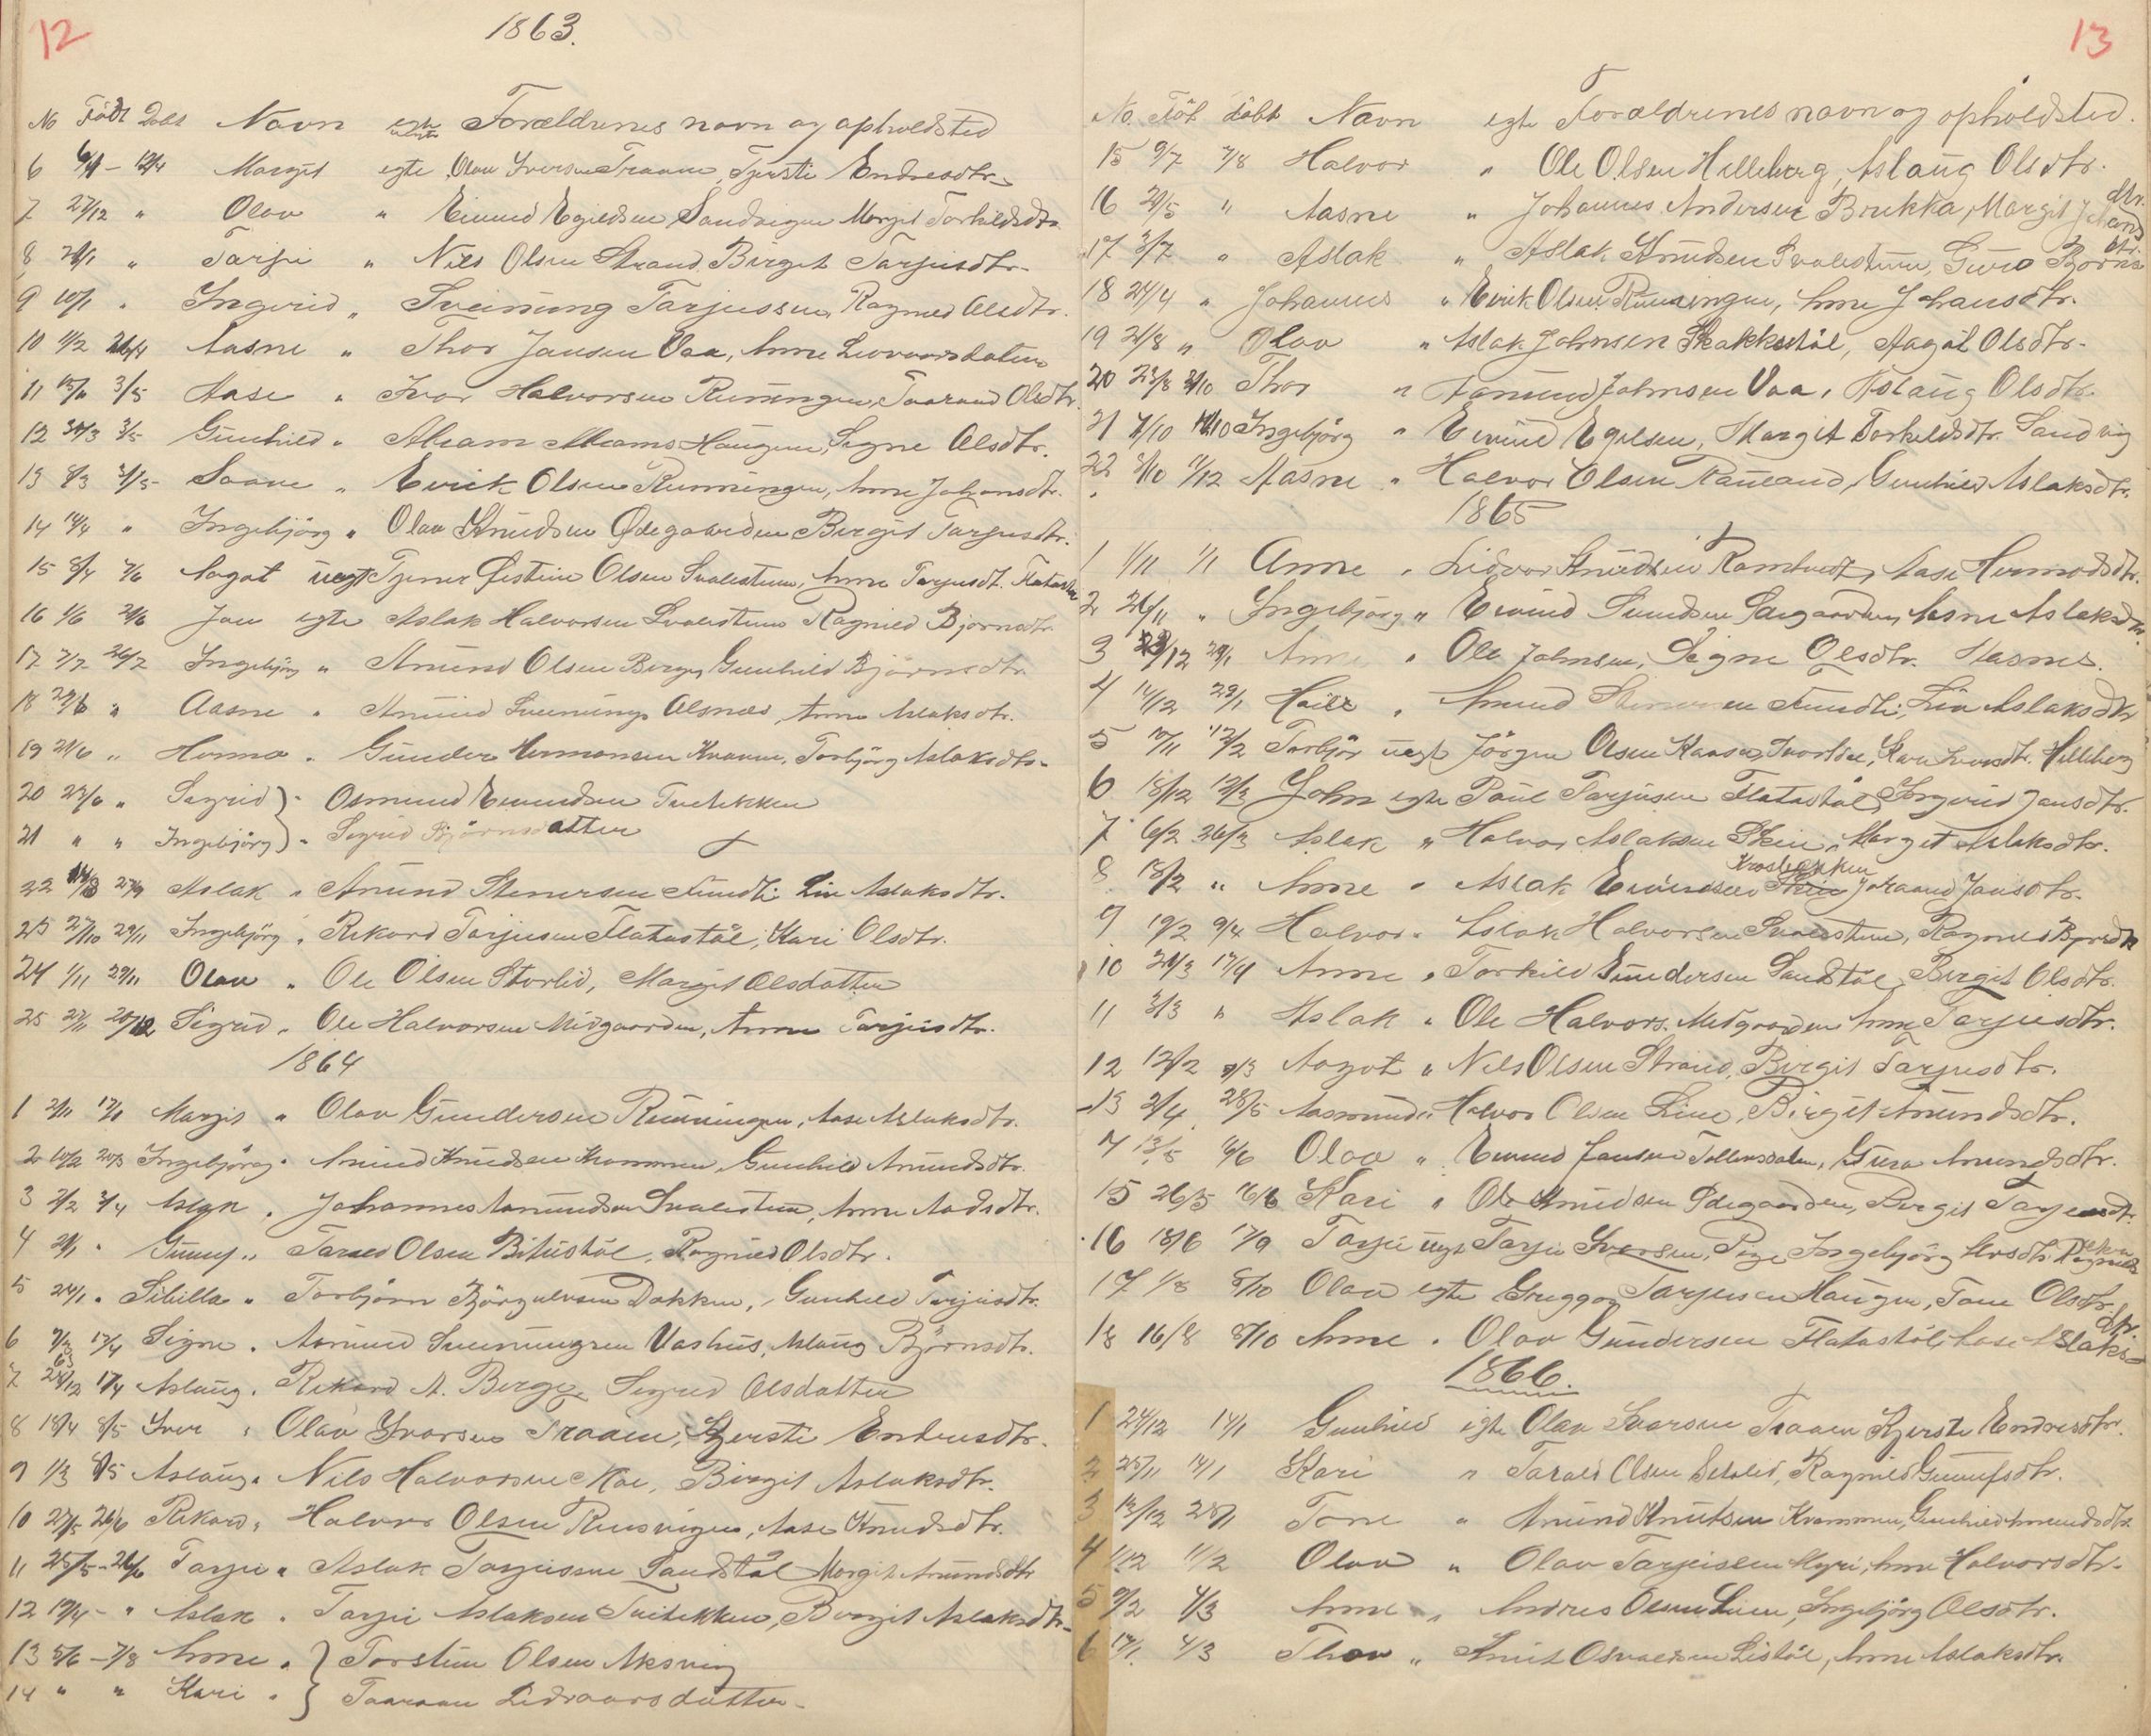 12
1863.
No Födt Döbt Navn egte uegte Forældrenes navn og opholdsted
6 12/4 Margit egte Olav Iversen Traaen, Tjersti Endresdtr.
7 27/12 " Olav " Eivind Egildsen Sandvigen Margit Torkildsdtr.
8 " Tarje " Nils Olsen Strand, Birgit Tarjusdtr.
9 10/1 " Ingerid " Sveinung Tarjussen, Ragnild Olsdtr.
10 1/2 26/4 Aasne " Thor Jansen Vaa, Anne
11 3/5 Aase " Ivar Halvorsen Runingen, Taarand Olsdtr.
12 30/3 3/5 Gunhild " Abram Abrams Haugen, Signe Olsdtr.
13 8/3 3/5 Saave " Evik Olsen Runningen, Anne Johansdtr.
14 14/4 " Ingebjörg " Olav Knudsen Ødegaarden Birgit Tarjusdtr.
15 8/4 7/6 Aagot uegt Tjener Øistein Olsen Svalestuen, Anne Tarjusdt.
16 1/6 21/6 Jan egte Aslak Halvorsen Svalestuen Ragnild Bjornsdtr.
17 7/7 26/7 Ingebjörg " Anund Olsen Berge, Gunhild Björnsdtr.
18 " Aasne " Anund Sveinungs Olsnes, Anne Aslaksdtr.
19 21/6 " Hermo " Gunder Hermonsen Kvaven, Torbjörg Aslaksdtr.
20 23/6 " Sigrid } " Osmund Eivindsen Tveitekken
21 " " Ingebjörg } " Sigrid Björnsdatter
22 27/9 Aslak " Anund Stenersen Fundli Liv Aslaksdtr.
23 27/10 29/11 Ingebjörg " Rikard Tarjusen Flatastöl, Kari Olsdtr.
24 1/11 29/11 Olav " Ole Olsen Storlid, Margit Olsdatter
25 20/12 Sigrid " Ole Halvorsen Midgaarden, Anne Tarjusdtr.
1864
1 17/1 Margit " Olav Gundersen Runingen, Aase Aslaksdtr.
2 10/2 20/3 Ingebjörg " Anund Knudsen Krommen, Gunhild Anundsdtr.
3 2/2 3/4 " Johannes Aanundsen Svalestuen, Anne Aadsdtr.
4 " Gunuf " Tarald Olsen Bitustöl, Ragnild Olsdtr.
5 24/1 " Sibilla " Torbjörn Björgulvsen Dokken, Gunhild Tarjusdtr.
6 17/4 Signe " Aanund Sveinungsen Vashus, Aslaug Björnsdtr.
7 28/12 63 17/4 Aslaug " Rikard A. Berge, Sigrid Olsdatter
8 18/4 8/5 Iver " Olav Ivarsen Traaen, Kjersti Endresdtr.
9 1/3 8/5 Aslaug " Nils Halvorsen Moe, Birgit Aslaksdtr.
10 27/5 26/6 Rikard " Halvor Olsen Rusvigen, Aase Knudsdtr.
11 25/5 - 26/6 Tarje " Aslak Tarjusen Sandstöl Margit Anundsdtr
12 19/4 - " Aslak " Tarje Aslaksen Tveitekken, Birgit Aslaksdtr.
13 5/6 - 7/8 Anne " } Torstein Olsen Aksvig
14 " " Kari " } Taaraan Lidvaarsdatter
13
No Föt döbt Navn egte Forældrenes navn og opholdsted.
15 9/7 7/8 Halvor " Ole Olsen Helleberg, Aslaug Olsdtr.
16 29/5 " Aasne " Johannes Andersen Brukka, Margit Johans dtr.
17 3/7 " Aslak " Aslak Knudsen Svalestuen, Guro Bjorns dtr.
18 24/4 " Johannes " Evik Olsen Runingen, Anne Johansdtr.
19 21/8 " Olav " Aslak Johnsen Skakkestöl, Aagöt Olsdtr.
20 23/8 Thor " Aanund Johnsen Vaa, Aslaug Olsdtr.
21 7/10 Ingebjörg " Eivind Egilsen, Margit Torkildsdtr. Sandvig
22 11/12 Aasne " Halvor Olsen Rauland, Gunhild Aslaksdtr.
1865
1 1/11 1/1 Anne " Lidvor Knudsen Romtveit, Aase Hermodsdtr.
2 26/11 " Ingebjörg " Eivind Aasne Aslaksdtr.
3 23/12 29/1 Anne " Ole Johnsen, Signe Olsdtr. Hasnes.
4 14/12 29/1 " Anund Stenersen Fundli, Liv Aslaksdtr
5 12/2 Torbjör uegt Jörgen Olsen Helleberg
6 18/12 12/3 John egte Paul Tarjusen Flatastöl, Ingerid Jansdtr.
7 6/2 26/3 Aslak " Halvor Aslaksen Skeie, Marget Aslaksdtr.
8 18/2 " Anne " Aslak Eivindsen Krosbekken Joraand Jansdtr.
9 19/2 9/4 Halvor " Aslak Halvorsen Svalestuen, Ragnild
10 17/4 Anne " Torkild Gundersen Sandstöl, Birgit Olsdtr.
11 3/3 " Aslak " Ole Halvors. Midgaarden Anne Tarjusdtr.
12 12/2 Aagot " Nils Olsen Strand, Birgit Tarjusdtr.
13 2/4 28/5 Aasmund " Halvor Olsen Lien, Birgit Anundsdtr.
14 13/5 Olav " Eivind Jansen Tollevsdalen, Guro Anundsdtr.
15 26/5 16/6 Kari " Ole Knudsen Ødegaarden, Birgit Tarjeusdtr.
16 18/6 17/9 Tarje uegt Tarje Iversen, Pige Ingebjörg
17 1/8 8/10 Olav egte Greggar Tarjusen Haugen, Tone Olsdtr.
18 16/8 8/10 Anne " Olav Gundersen Flatastöl, Aase Aslaks dtr.
1866.
1 24/12 14/1 Gunhild egte Olav Ivarsen Traaen Kjersti Endresdtr.
2 25/11 14/1 Kari " Tarald Olsen Ragnild Gunufsdtr.
3 12/12 28/1 Tone " Anund Knutsen Krommen, Gunhild Anundsdtr.
4 1/12 11/2 Olav " Olav Tarjeisen Myri, Anne Halvorsdtr.
5 9/2 4/3 Anne " Andres Olsen Lien, Ingebjörg Olsdtr.
6 17/1 4/3 Thor " Knut Osvaldsen Listöl, Anne Aslaksdtr.